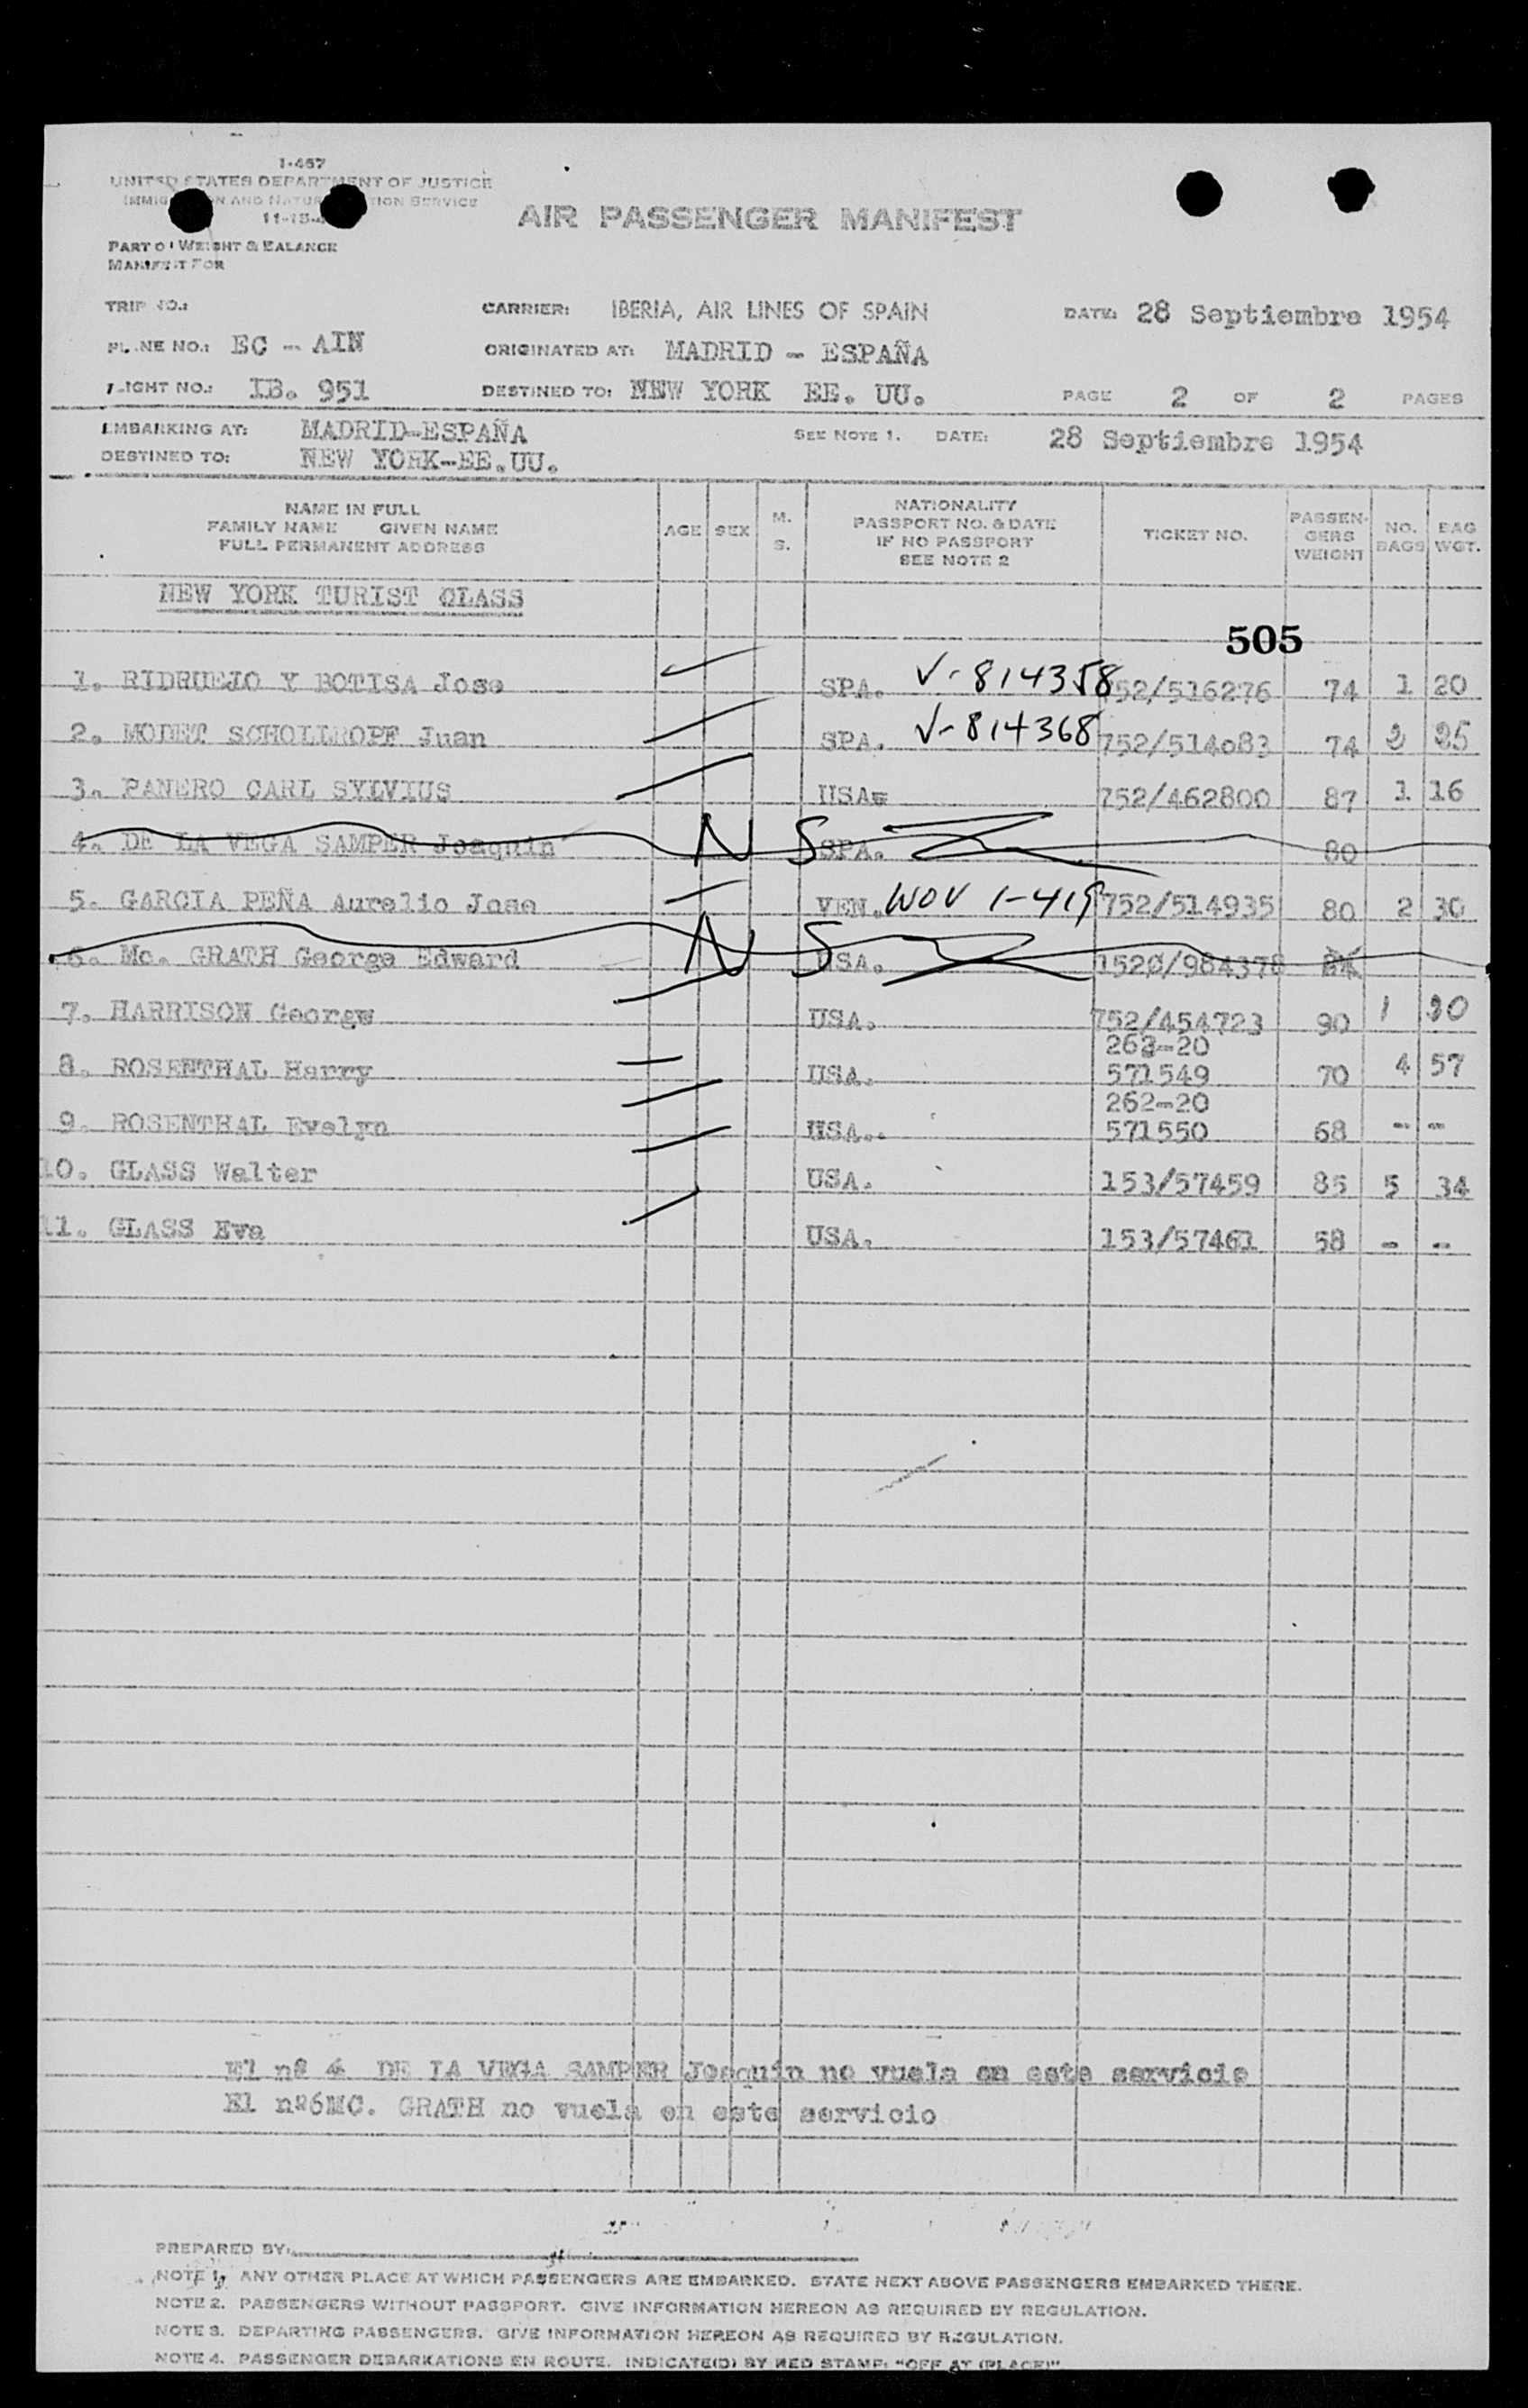 1-467
UNITED STATES DEPARTMENT OF JUSTICE
IMMIGRATION AND NATURALIZATION SERVICE
AIR PASSENGER MANIFEST
PART OF WEIGHT & BALANCE
MANIFEST FOR
TRIP NO.: CARRIER: IBERIA, AIR LINES OF SPAIN DATE: 28 Septiembre 1954
PLANE NO.: EC - AIN ORIGINATED AT: MADRID - ESPAÑA
FLIGHT NO.: IB. 951 DESTINED TO: NEW YORK EE. UU. PAGE 2 OF 2 PAGES
EMBARKING AT: MADRID-ESPAÑA SEE NOTE 1. DATE: 28 Septiembre 1954
DESTINED TO: NEW YORK-EE.UU.
NAME IN FULL
FAMILY NAME GIVEN NAME
FULL PERMANENT ADDRESS
AGE SEX M. S.
NATIONALITY
PASSPORT NO. & DATE
IF NO PASSPORT
SEE NOTE 2
TICKET NO.
PASSEN-
GERS
WEIGHT
NO.
BAGS
BAG
WGT.
NEW YORK TURIST CLASS
505
1. RIDRUEJO Y BOTISA Jose SPA. V-814358 752/516276 74 1 20
2. MODET SCHOLLROPF Juan SPA. V-814368 752/514083 74 2 25
3. PANERO CARL SYLVIUS USA. 752/462800 87 1 16
4. DE LA VEGA SAMPER Joaquin N S SPA. 80
5. GARCIA PEÑA Aurelio Jose VEN. WOV 1-419 752/514935 80 2 30
6. Mc. GRATH George Edward N S USA. 152 /984378
7. HARRISON George USA. 752/454723 90 1 20
8. ROSENTHAL Harry USA. 262-20 571549 70 4 57
9. ROSENTHAL Evelyn USA.. 262-20 571550 68 -- --
10. GLASS Walter USA. 153/57459 85 5 34
11. GLASS Eva USA. 153/57461 58 - --
El nº 4 DE LA VEGA SAMPER Joaquin no vuela en este servicio
El nº6MC. GRATH no vuela en este servicio
PREPARED BY:
NOTE 1. ANY OTHER PLACE AT WHICH PASSENGERS ARE EMBARKED. STATE NEXT ABOVE PASSENGERS EMBARKED THERE.
NOTE 2. PASSENGERS WITHOUT PASSPORT. GIVE INFORMATION HEREON AS REQUIRED BY REGULATION.
NOTE 3. DEPARTING PASSENGERS. GIVE INFORMATION HEREON AS REQUIRED BY REGULATION.
NOTE 4. PASSENGER DEBARKATIONS EN ROUTE. INDICATE(D) BY RED STAMP: "OFF AT (PLACE)"